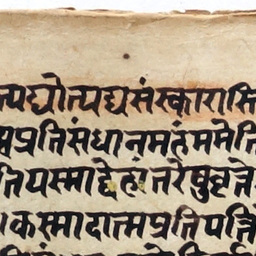 त्पद्योत्पद्यसंस्कारास्ति
प्रतिसंधानमहंममेति
तियस्माद्देहांतरेषुवृत्ते
कस्मादात्मप्रतिपत्ति